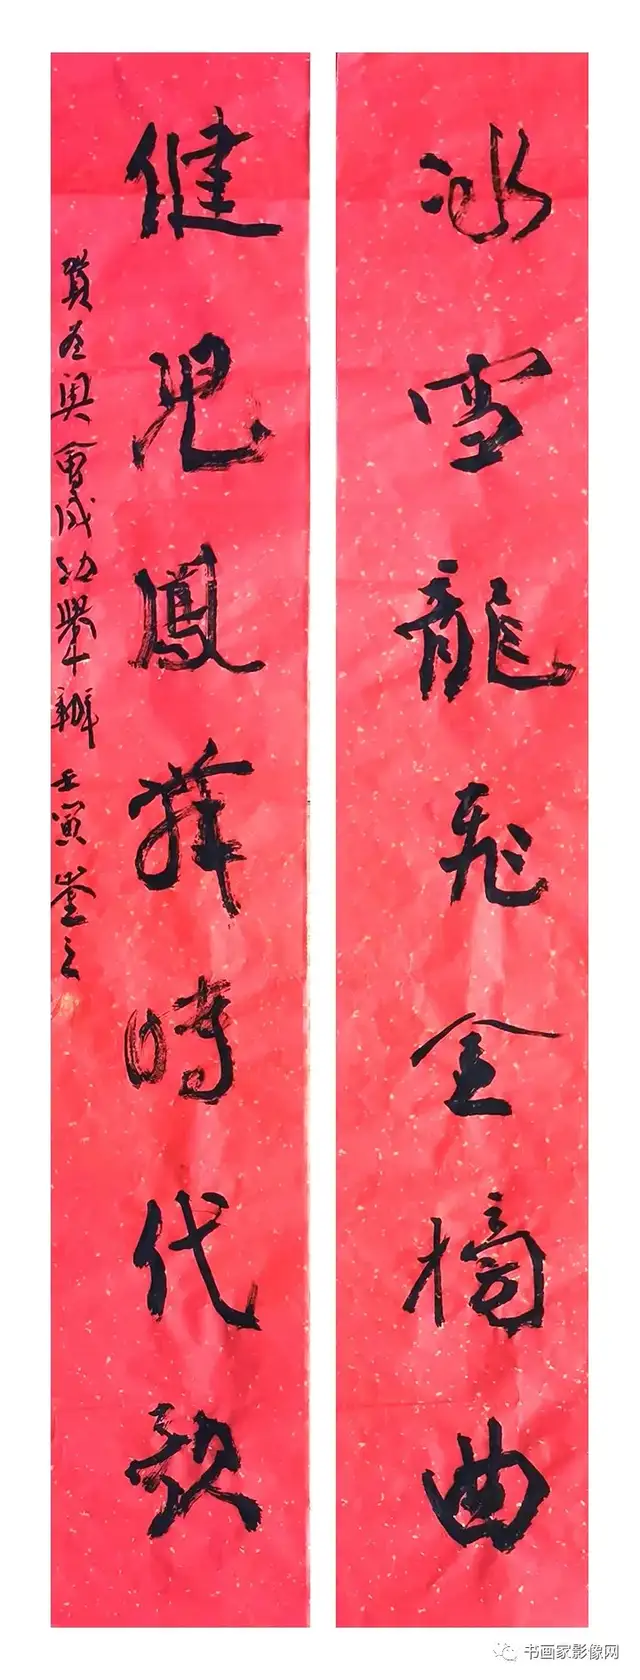 冰雪龍飛金摘曲
健児鳳舞時代歌
賀冬奥會成功舉辦 壬寅 崟之
书画家影像网